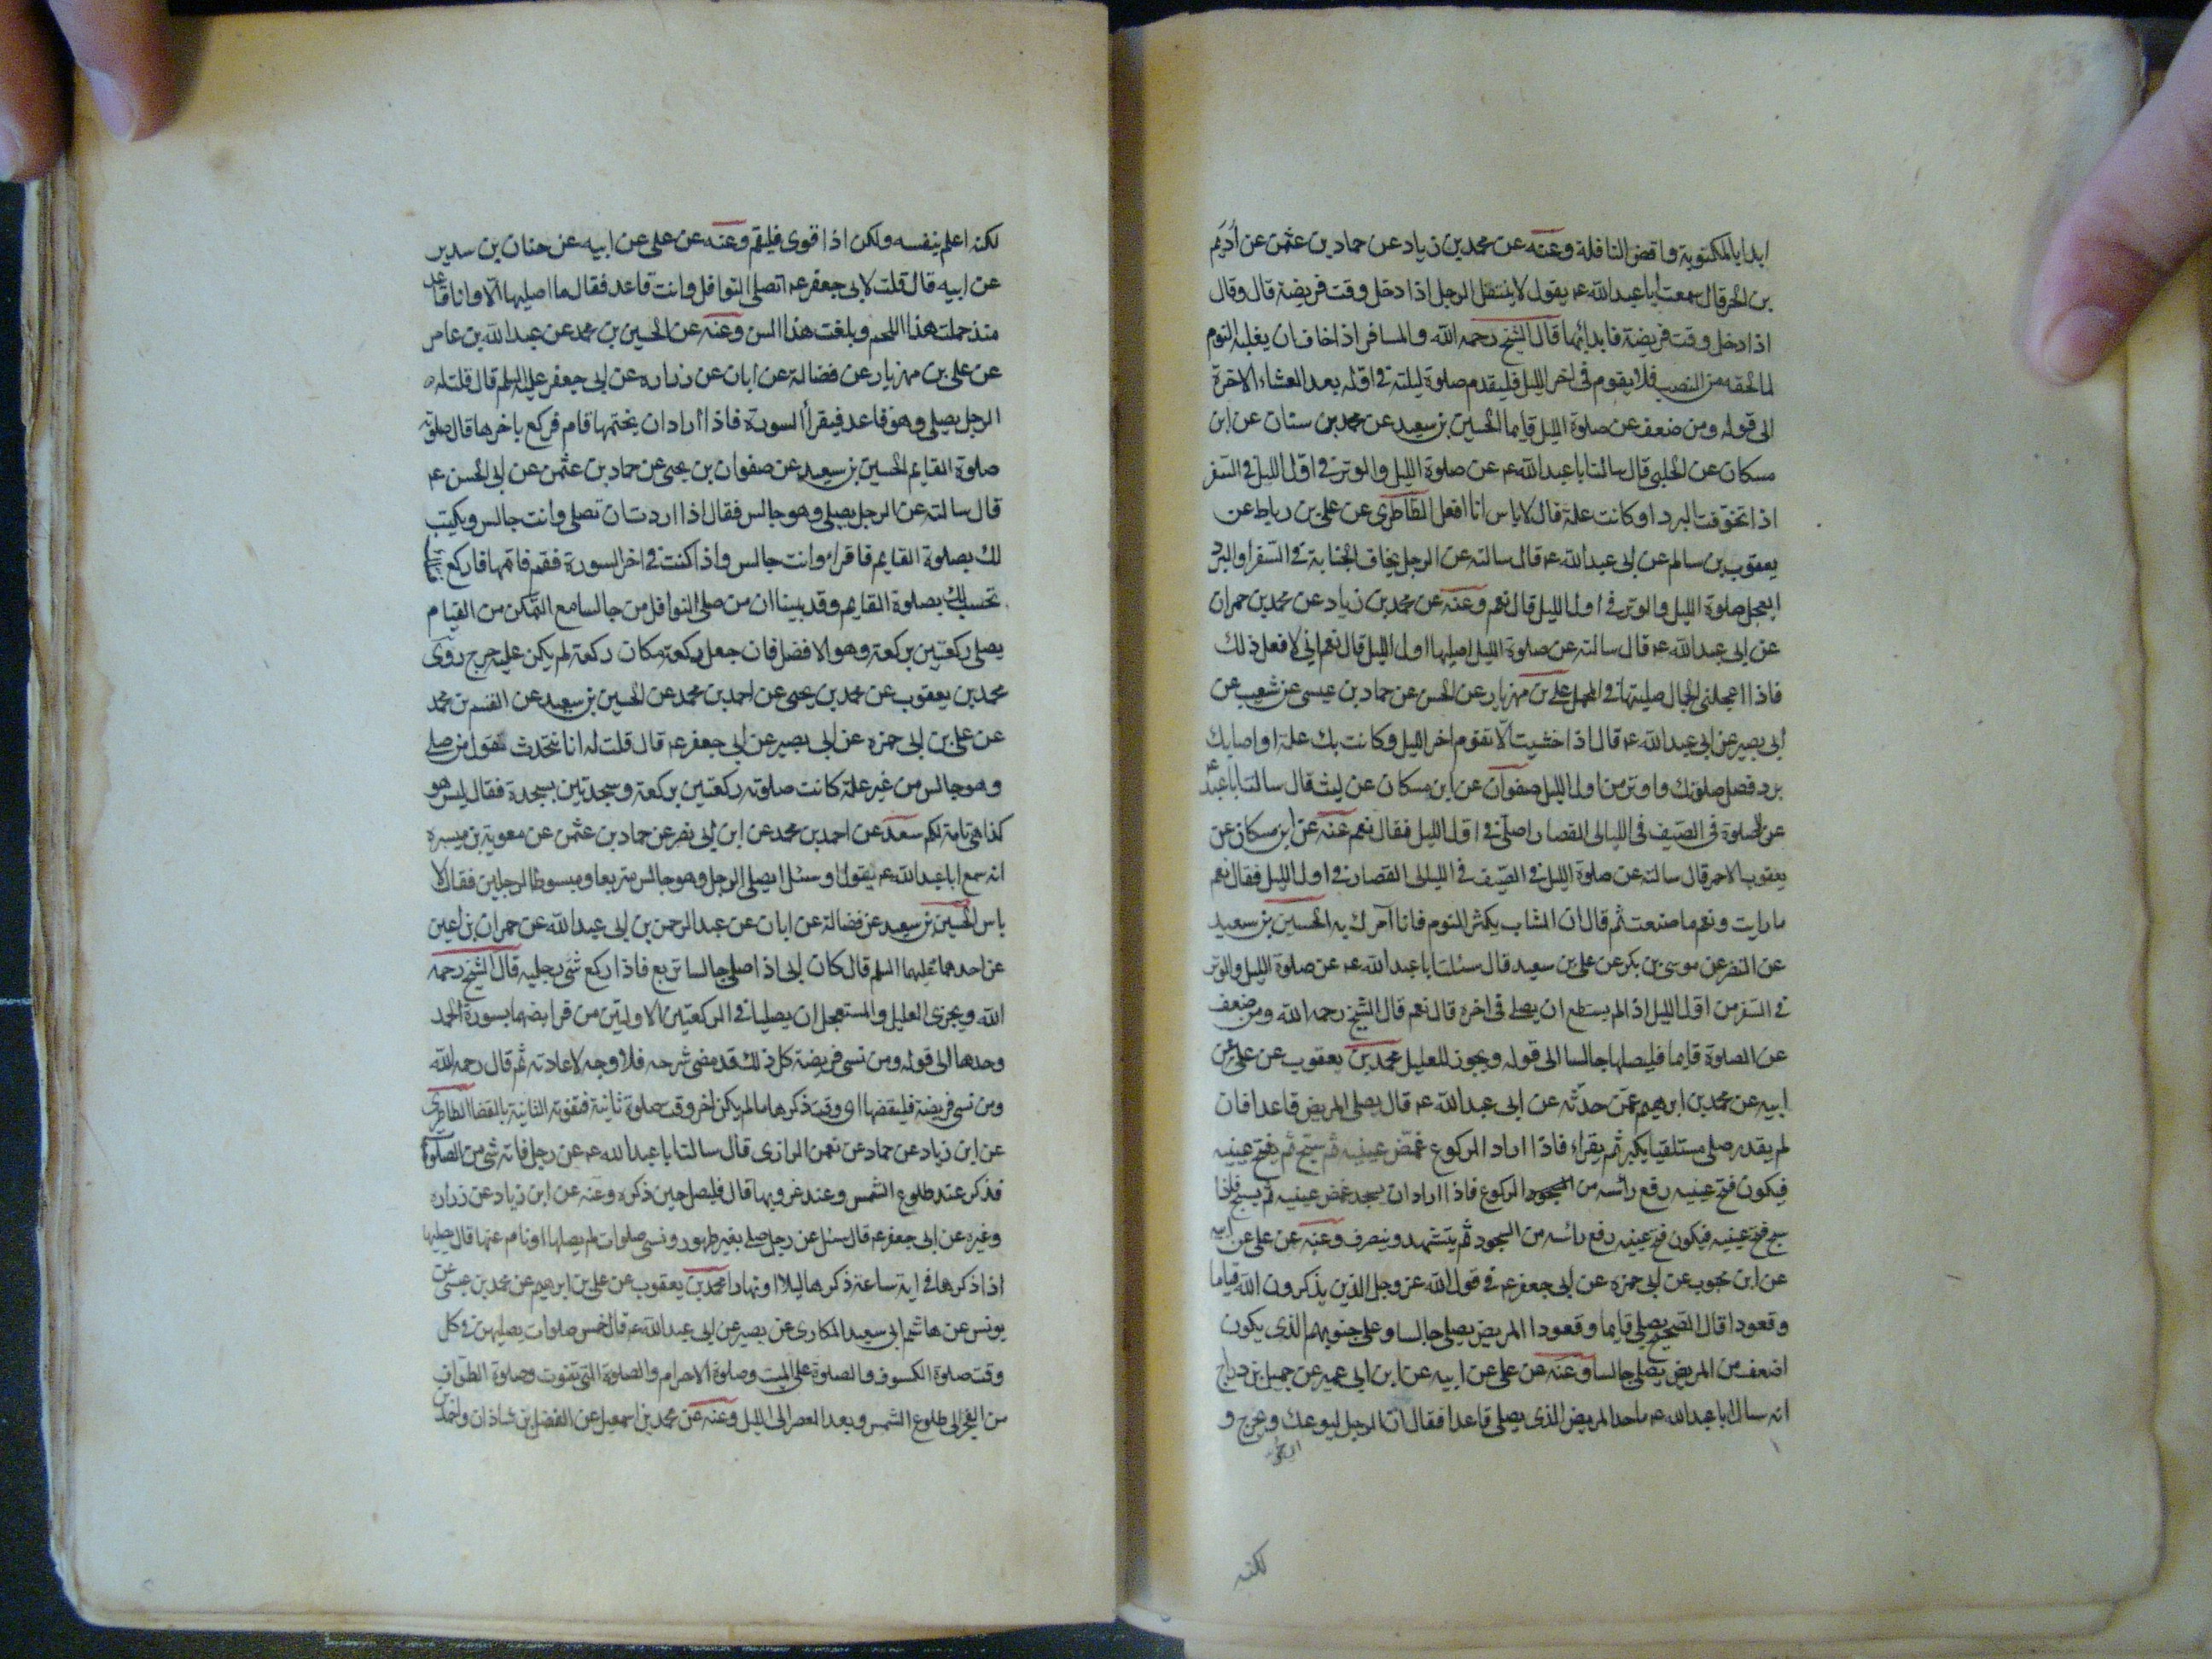 ابدا بالمكتوبة واقض النافلة وعنه عن محمد بن زياد عن حماد بن عثمن عن أديم
بن الحر قال سمعت أبا عبد الله ع يقول لا يتنفل الرجل اذا دخل وقت فريضة قال وقال
اذا دخل وقت فريضة فابدا بها قال الشيخ رحمه الله والمسافر اذا خاف ان يغلبه النوم
لما لحقه من النصب فلا يقوم فى اخر الليل فليقدم صلوة ليلته فى اوله بعد العشاء الاخرة
الى قوله ومن ضعف عن صلوة الليل قايما الحسين بن سعيد عن محمد بن سنان عن ابن
مسكان عن الحلبى قال سالت ابا عبد الله ع عن صلوة الليل والوتر فى اول الليل فى السفر
اذا تخوفت البرد او كانت علة قال لا باس انا افعل الطاطرى عن على بن رباط عن
يعقوب بن سالم عن ابى عبد الله ع قال سالته عن الرجل يخاف الجنابة فى السفر او البرد
ايعجل صلوة الليل والوتر فى اول الليل قال نعم وعنه عن محمد بن زياد عن محمد بن حمران
عن ابى عبد الله ع قال سالته عن صلوة الليل اصليها اول الليل قال نعم انى لافعل ذلك
فاذا اعجلنى الجمال صليتها فى المحمل على بن مهزيار عن الحسن عن حماد بن عيسى عن شعيب عن
أبى بصير عن ابى عبد الله ع قال اذا خشيت ألا تقوم اخر الليل وكانت بك علة او اصابك
برد فصل صلوتك واوتر من اول الليل صفوان عن ابن مسكان عن ليث قال سالت ابا عبد ع
عن الصلوة فى الصيف فى الليالى القصار اصلى فى اول الليل فقال نعم عنه عن ابن مسكان عن
يعقوب الاحمر قال سالته عن صلوة الليل فى الصيف فى الليالى القصار فى اول الليل فقال نعم
ما رايت ونعم ما صنعت ثم قال ان الشاب يكثر النوم فانا آمرك به الحسين بن سعيد
عن النضر عن موسى بن بكر عن على بن سعيد قال سئلت ابا عبد الله ع عن صلوة الليل والوتر
فى السفر من اول الليل اذا لم يستطع ان يصلى فى اخره قال نعم قال الشيخ رحمه الله ومن ضعف
عن الصلوة قايما فليصلها جالسا الى قوله ويجوز للعليل محمد بن يعقوب عن على عن
ابيه عن محمد بن ابرهيم عمن حدثه عن ابى عبد الله ع قال يصلى المريض قاعدا فان
لم يقدر صلى مستلقيا يكبر ثم يقراء فاذا اراد الركوع غمض عينيه ثم سبح ثم يفتح عينيه
فيكون فتح عينيه رفع رائسه من الركوع فاذا اراد ان يسجد غمض عينيه ثم يسبح فاذا
سبح فتح عينيه فيكون فتح عينيه رفع رائسه من السجود ثم يتشهد وينصرف وعنه عن على عن ابيه
عن ابن محبوب عن ابى حمزه عن ابى جعفر ع فى قول الله عز وجل الذين يذكرون الله قياما
وقعودا قال الصحيح يصلى قايما وقعودا المريض يصلى جالسا وعلى جنوبهم الذى يكون
اضعف من المريض يصلى جالسا وعنه عن على عن ابيه عن ابن ابى عمير عن جميل بن دراج
انه سال ابا عبد الله ع ما حد المريض الذى يصلى قاعدا فقال ان الرجل ليوعك ويحرج و
لكنه
لكنه اعلم بنفسه ولكن اذا قوى فليقم وعنه عن على عن ابيه عن حنان بن سدير
عن ابيه قال قلت لابى جعفر ع اتصلى النوافل وانت قاعد فقال ما اصليها الا وانا قاعد
منذ حملت هذا اللحم وبلغت هذا السن وعنه عن الحسين بن محمد عن عبد الله بن عامر
عن على بن مهزيار عن فضالة عن ابان عن زراره عن ابى جعفر عليه السلم قال قلت له
الرجل يصلى وهو قاعد فيقرأ السورة فاذا اراد ان يختمها قام فركع باخرها قال صلوته
صلوة القايم الحسين بن سعيد عن صفوان بن يحيى عن حماد بن عثمن عن ابى الحسن ع
قال سالته عن الرجل يصلى وهو جالس فقال اذا اردت ان تصلى وانت جالس ويكتب
لك بصلوة القايم فاقراء وانت جالس واذا كنت فى اخر السورة فقم فاتمها فاركع
تحسب لك بصلوة القايم وقد بينا ان من صلى النوافل من جالسا مع التمكن من القيام
يصلى ركعتين بركعة وهو الافضل فان جعل ركعة مكان ركعة لم يكن عليه حرج روى
محمد بن يعقوب عن محمد بن يحيى عن احمد بن محمد عن الحسين بن سعيد عن القسم بن محمد
عن على بن ابى حمزه عن ابى بصير عن ابى جعفر ع قال قلت له انا نتحدث نقول من صلى
وهو جالس من غير علة كانت صلوته ركعتين بركعة وسجدتين بسجدة فقال ليس هو
كذا هى تامة لكم سعد عن احمد بن محمد عن ابن ابى نصر عن حماد بن عثمن عن معوية بن ميسره
انه سمع ابا عبد الله ع يقول او سئل ايصلى الرجل وهو جالس متربعا ومبسوط الرجلين فقال لا
باس الحسين بن سعيد عن فضالة عن ابان عن عبد الرحمن بن ابى عبد الله عن حمران بن اعين
عن احدهما عليهما السلم قال كان ابى اذا صلى جالسا تربع فاذا ركع ثنى رجليه قال الشيخ رحمه
الله ويجزى العليل والمستعجل ان يصليا فى الركعتين الاوليين من فرايضهما بسورة الحمد
وحدها الى قوله ومن نسى فريضة كل ذلك قد مضى شرحه فلا وجه لاعادته ثم قال رحمه الله
ومن نسى فريضة فليقضها اى وقت ذكرها ما لم يكن اخر وقت صلوة ثانية فتفوته الثانية بالقضا الطاطرى
عن ابن زياد عن حماد عن نعمن الرازى قال سالت ابا عبد الله ع عن رجل فاته شى من الصلوة
فذكر عند طلوع الشمس وعند غروبها قال فليصل حين ذكره وعنه عن ابن زياد عن زراره
وغيره عن ابى جعفر ع قال سئل عن رجل صلى بغير طهور ونسى صلوات لم يصلها او نام عنها قال يصليها
اذا ذكرها فى اية ساعة ذكرها ليلا او نهارا محمد بن يعقوب عن على بن ابرهيم عن محمد بن عيسى عن
يونس عن هاشم ابى سعيد المكارى عن بصير عن ابى عبد الله ع قال خمس صلوات يصليهن فى كل
وقت صلوة الكسوف والصلوة على الميت وصلوة الاحرام والصلوة التى تفوت وصلوة الطواف
من الفجر الى طلوع الشمس وبعد العصر الى الليل وعنه عن محمد بن اسمعيل عن الفضل بن شاذان واحمد بن